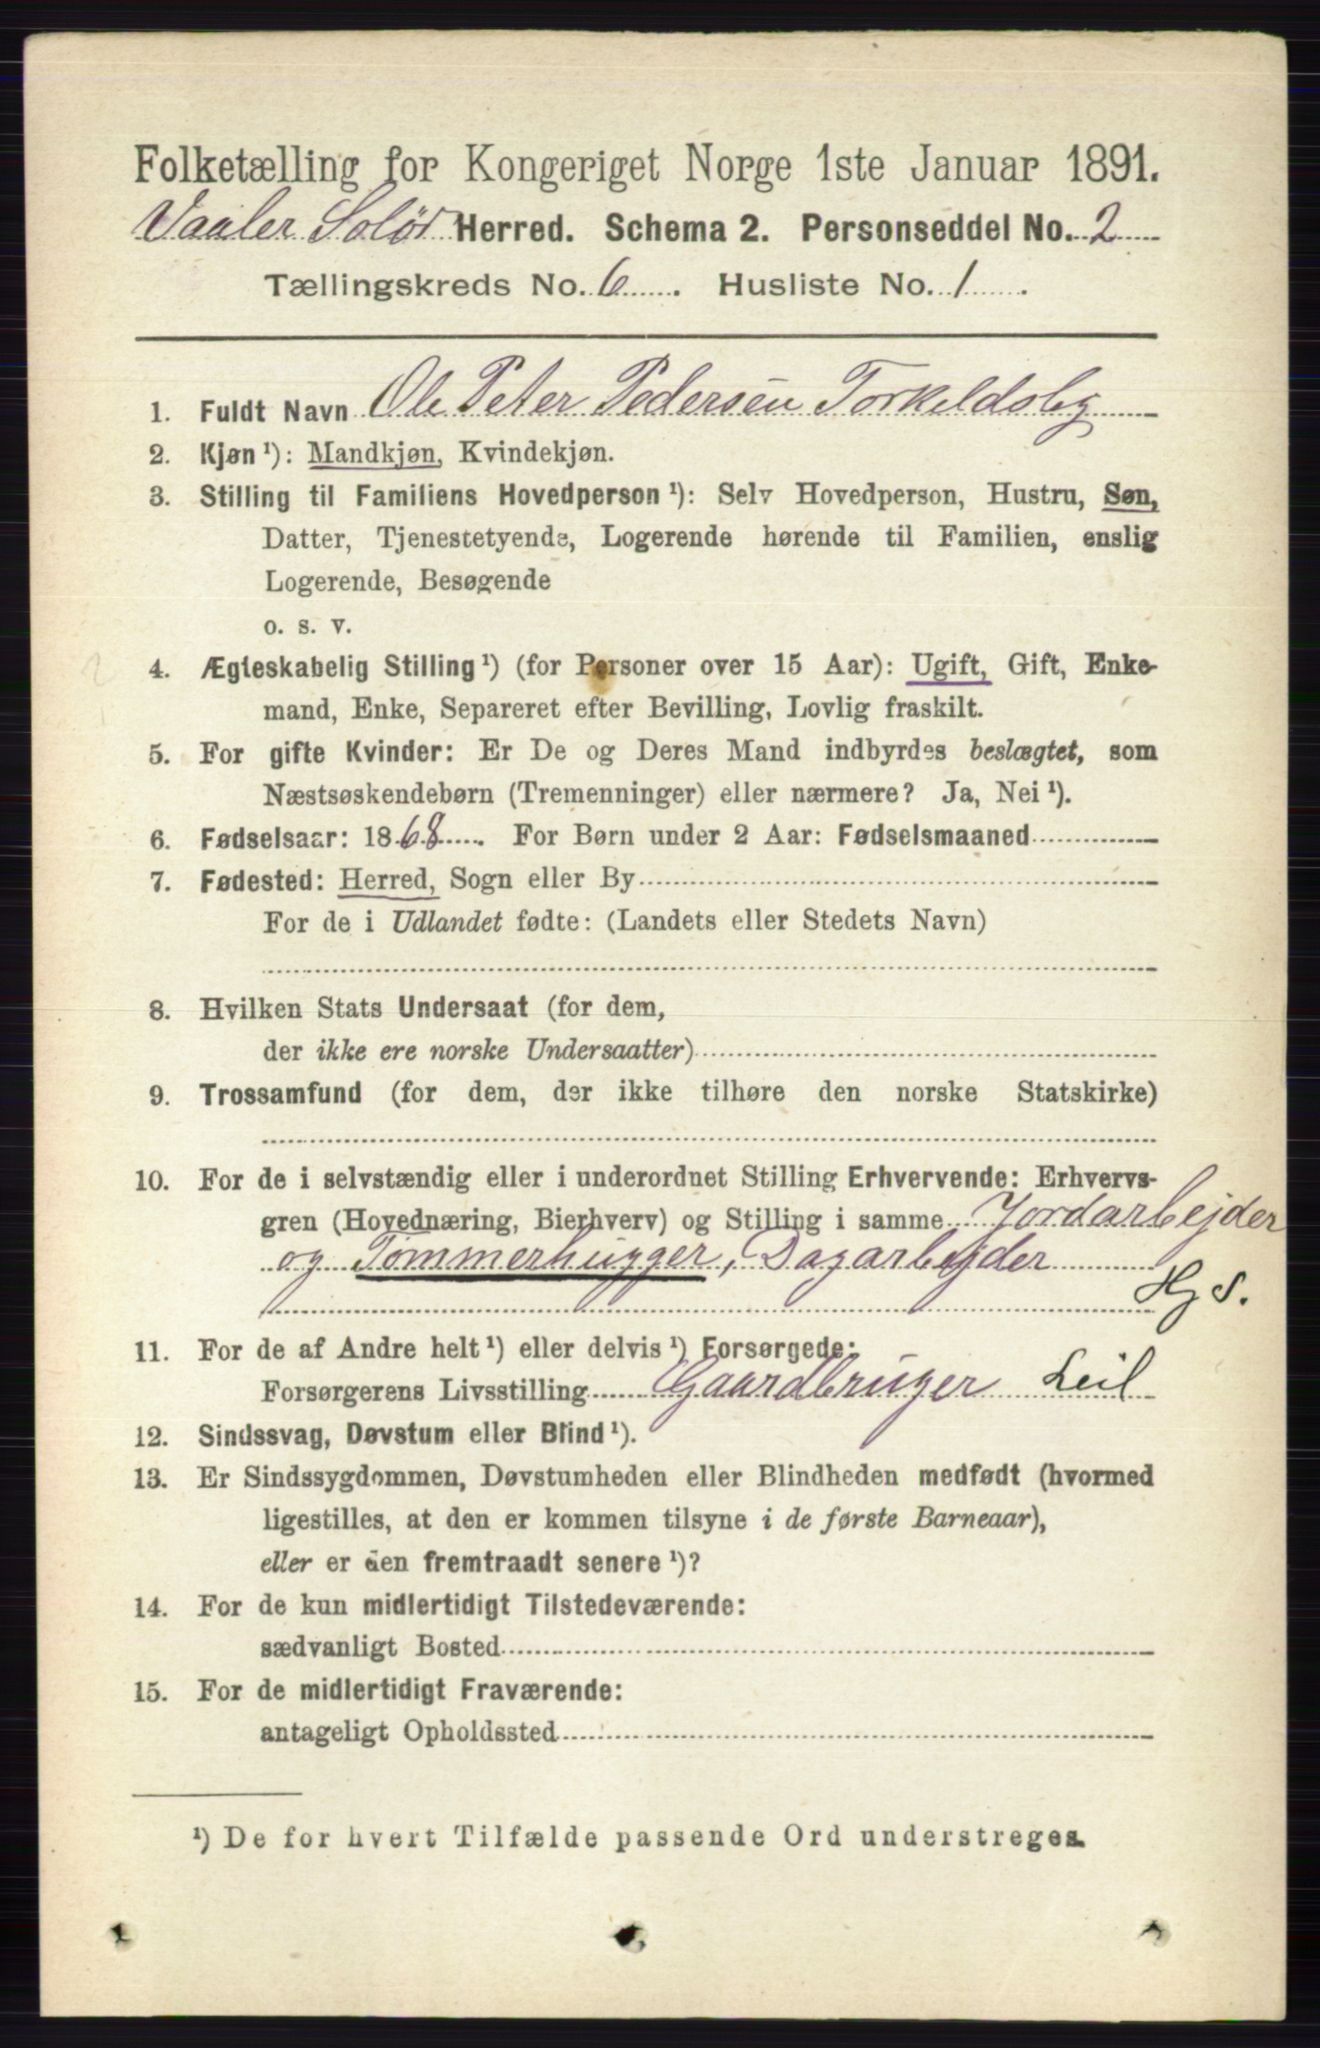 Folketælling for Kongeriget Norge 1ste Januar 1891.
Vaaler Solør Herred. Schema 2. Personseddel No. 2
Tællingskreds No. 6. Husliste No. 1.
1. Fuldt Navn Ole Peter Pedersen Torkeldsby
2. Kjøn ¹): Mandkjøn, Kvindekjøn.
3. Stilling til Familiens Hovedperson ¹): Selv Hovedperson, Hustru, Søn,
Datter, Tjenestetyende, Logerende hørende til Familien, enslig
Logerende, Besøgende
o. s. v.
4. Ægteskabelig Stilling ¹) (for Personer over 15 Aar): Ugift, Gift, Enke-
mand, Enke, Separeret efter Bevilling, Lovlig fraskilt.
5. For gifte Kvinder: Er De og Deres Mand indbyrdes beslægtet, som
Næstsøskendebørn (Tremenninger) eller nærmere? Ja, Nei ¹).
6. Fødselsaar: 1868. For Børn under 2 Aar: Fødselsmaaned
7. Fødested: Herred, Sogn eller By
For de i Udlandet fødte: (Landets eller Stedets Navn)
8. Hvilken Stats Undersaat (for dem,
der ikke ere norske Undersaatter)
9. Trossamfund (for dem, der ikke tilhøre den norske Statskirke)
10. For de i selvstændig eller i underordnet Stilling Erhvervende: Erhvervs-
gren (Hovednæring, Bierhverv) og Stilling i samme Jordarbejder
og Tømmerhugger, Dagarbejder
Hj S.
11. For de af Andre helt ¹) eller delvis ¹) Forsørgede:
Forsørgerens Livsstilling Gaardbruger Leil
12. Sindssvag, Døvstum eller Blind ¹).
13. Er Sindssygdommen, Døvstumheden eller Blindheden medfødt (hvormed
ligestilles, at den er kommen tilsyne i de første Barneaar),
eller er den fremtraadt senere ¹)?
14. For de kun midlertidigt Tilstedeværende:
sædvanligt Bosted
15. For de midlertidigt Fraværende:
antageligt Opholdssted
¹) De for hvert Tilfælde passende Ord understreges.